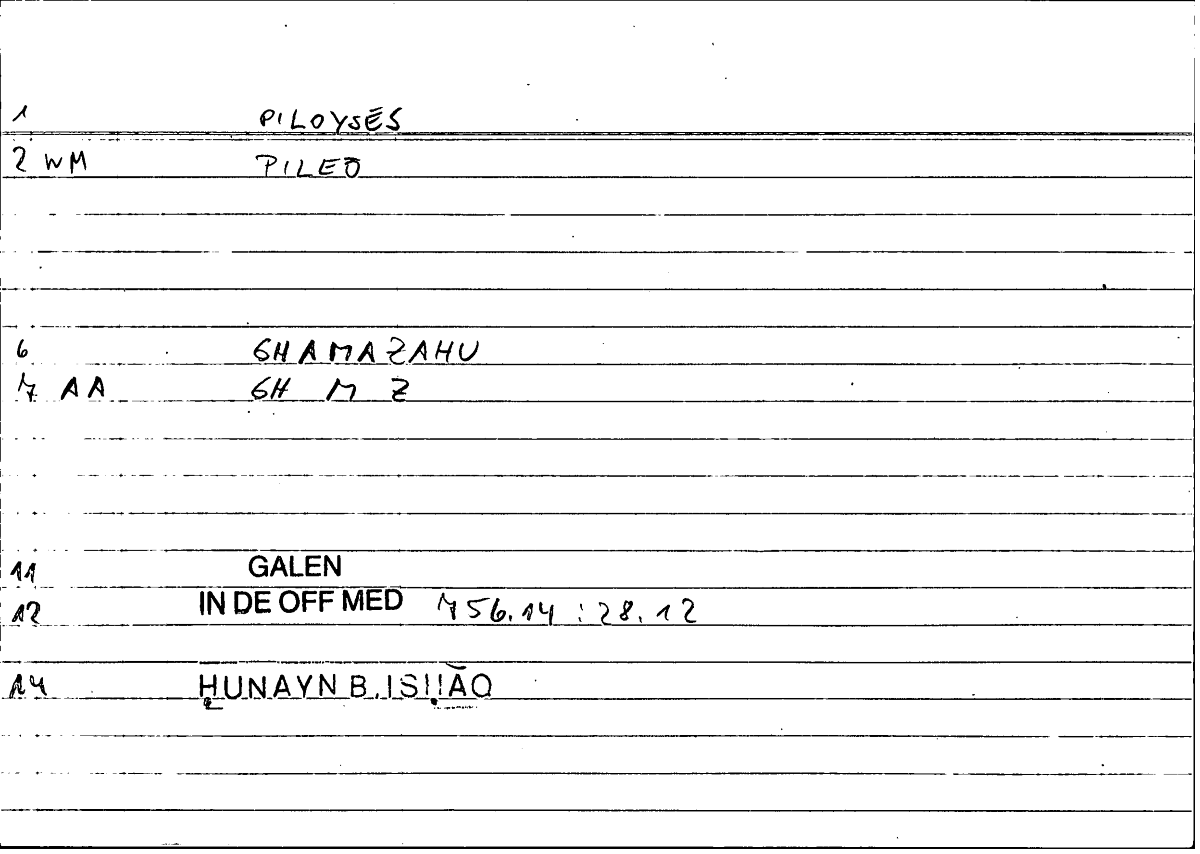 1 PILOYSĒS
2 WM PILEŌ
6 GHAMAZAHU
7 AA GH M Z
11 GALEN
12 IN DE OFF MED 756.14 : 28.12
14 ḤUNAYN B.ISḤĀQ